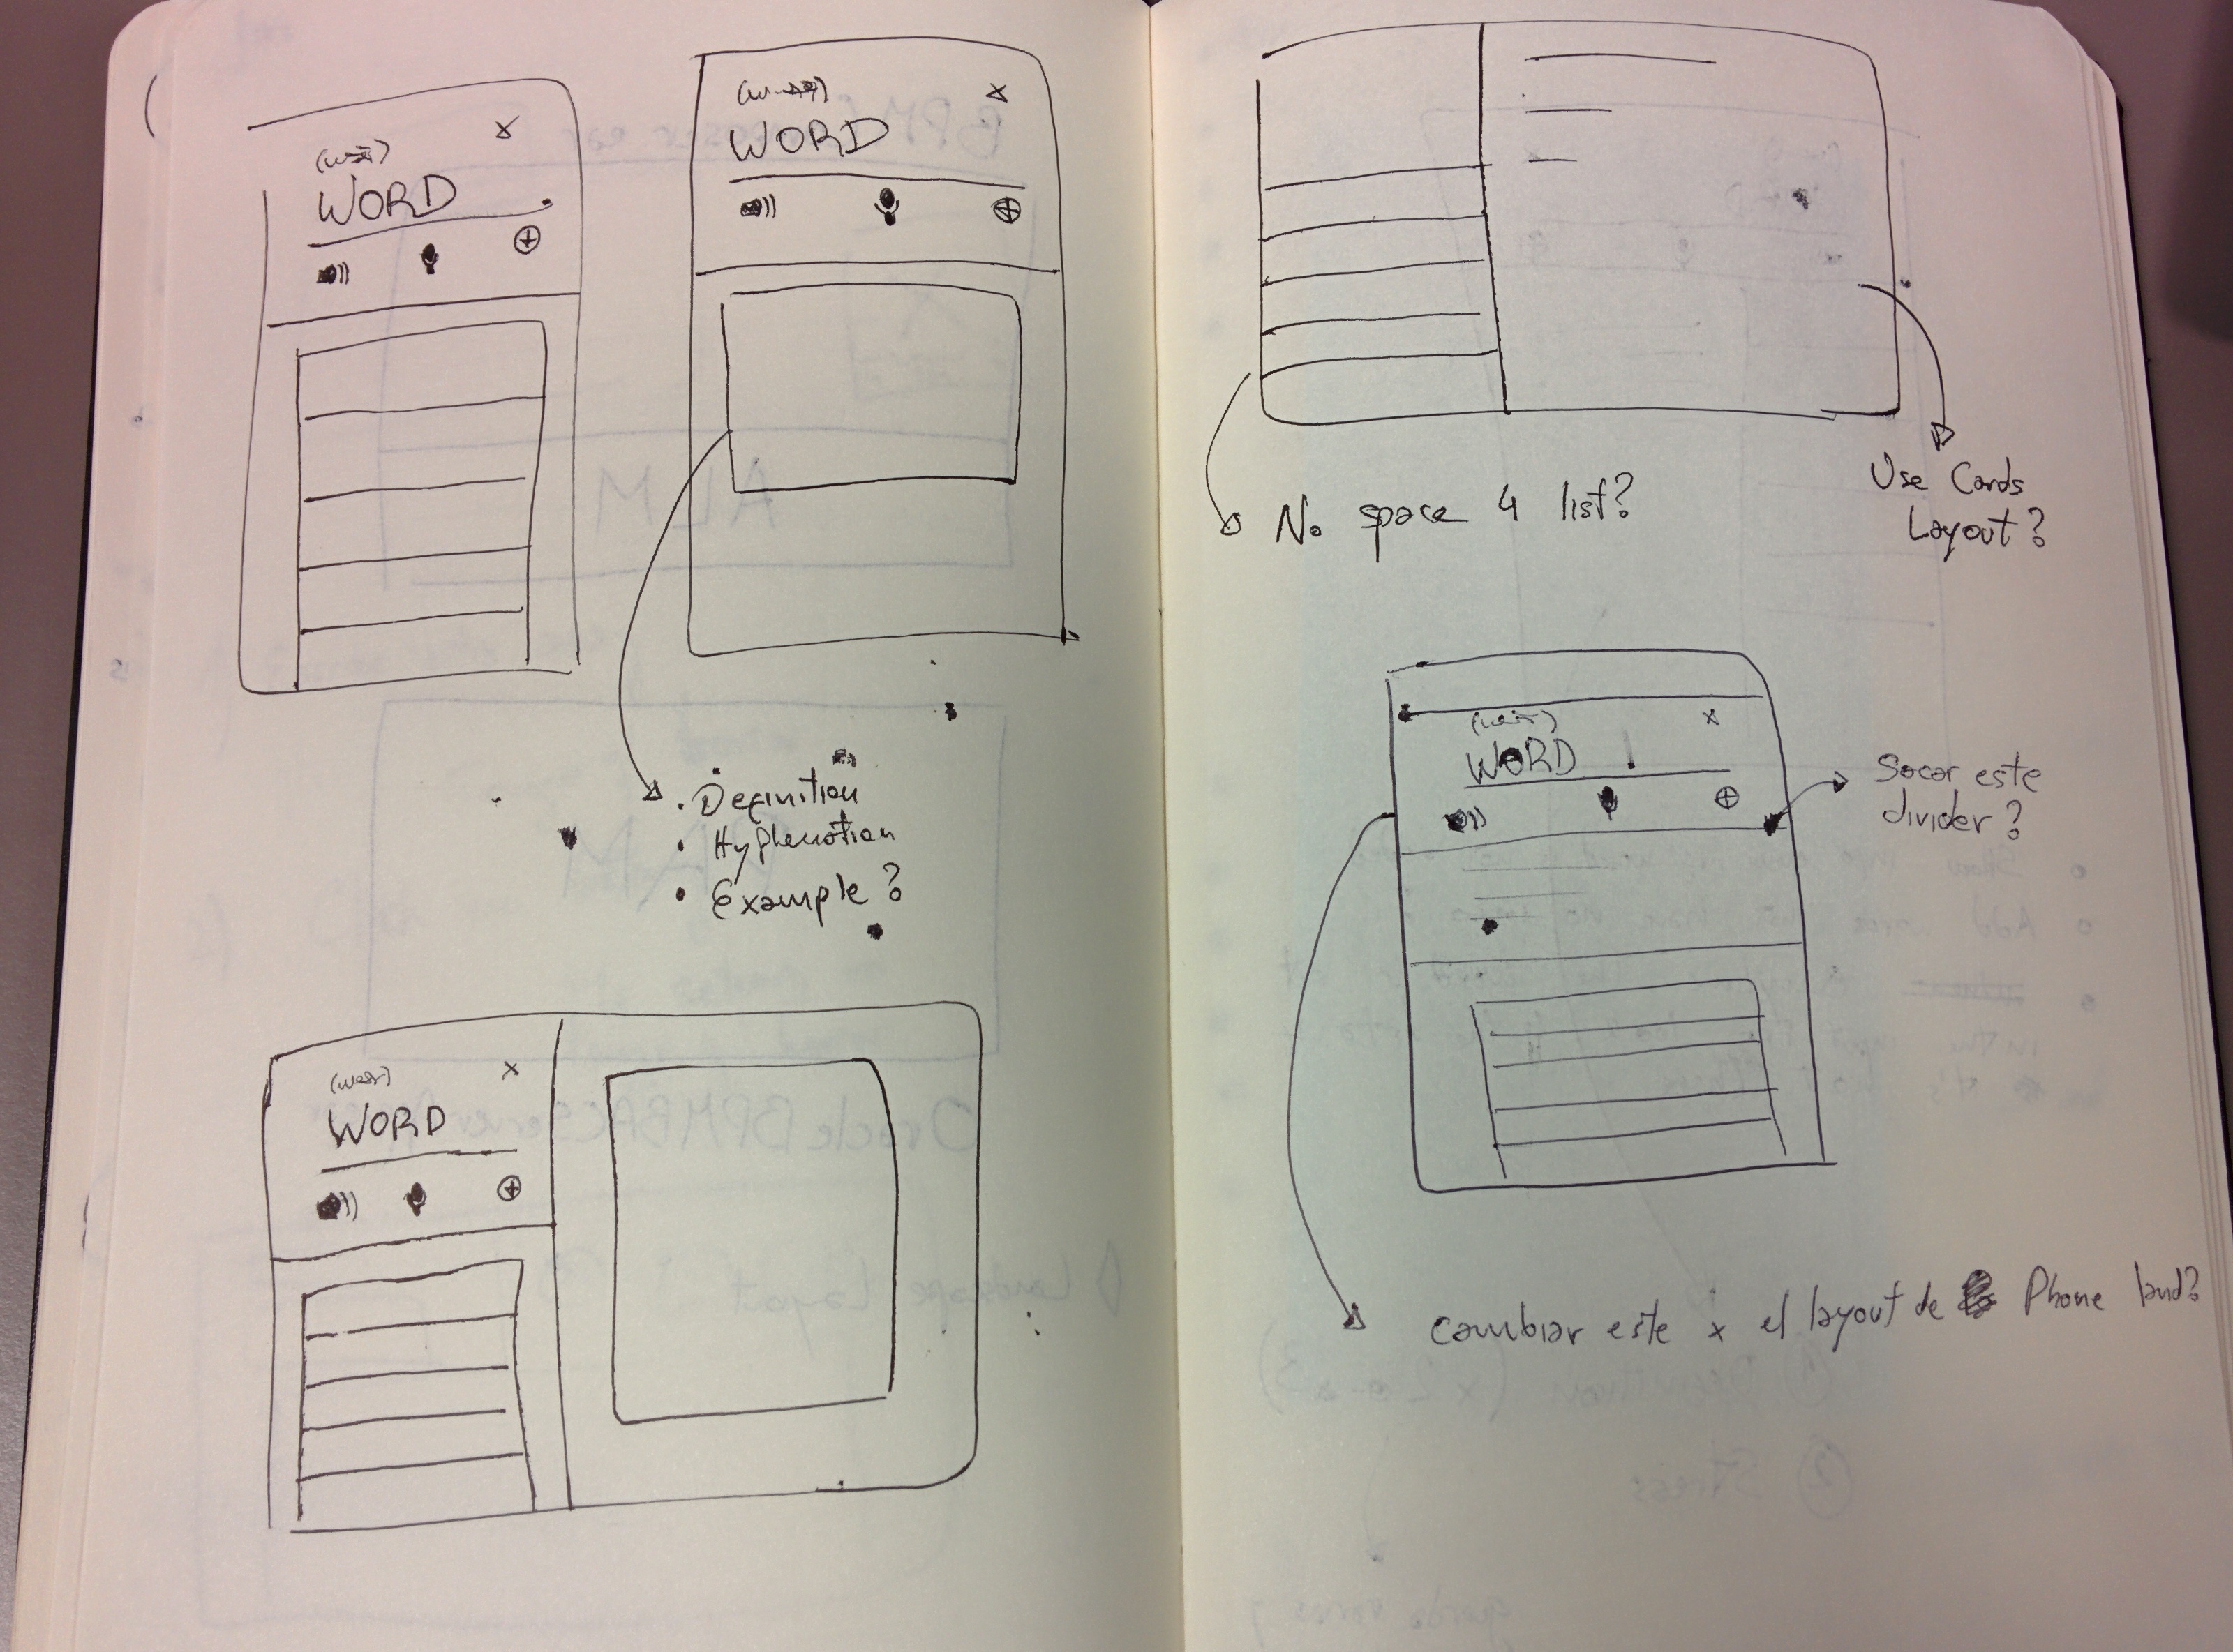 WORD
x
WORD
x
• Definition
• Hyphenation
• Example?
WORD
x
No space 4 list?
Use Cards
Layout?
WORD
x
Sacar este
divider?
cambiar este x el layout de Phone land?